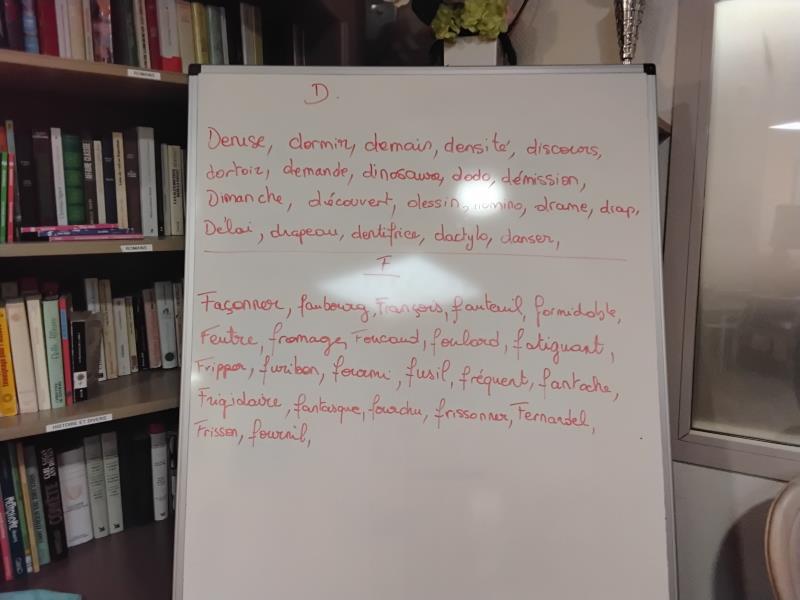 ROMANS
ROMANS
HISTOIRE ET DIVERS
D.
Denise, dormir, demain, densité, discours,
dortoir, demande, dinosaure, dodo, démission,
Dimanche, découvert, dessin, domino, drame, drap,
Délai, drapeau, dentifrice, dactylo, danser,
F
Façonner, faubourg, François, fauteuil, formidable,
Feutre, fromage, Foucaud, foulard, fatiguant,
Fripper, furibon, fourmi, fusil, fréquent, fantoche,
Frigidaire, fantasque, fourchu, frissonner, Fernandel,
Frisson, fournil,